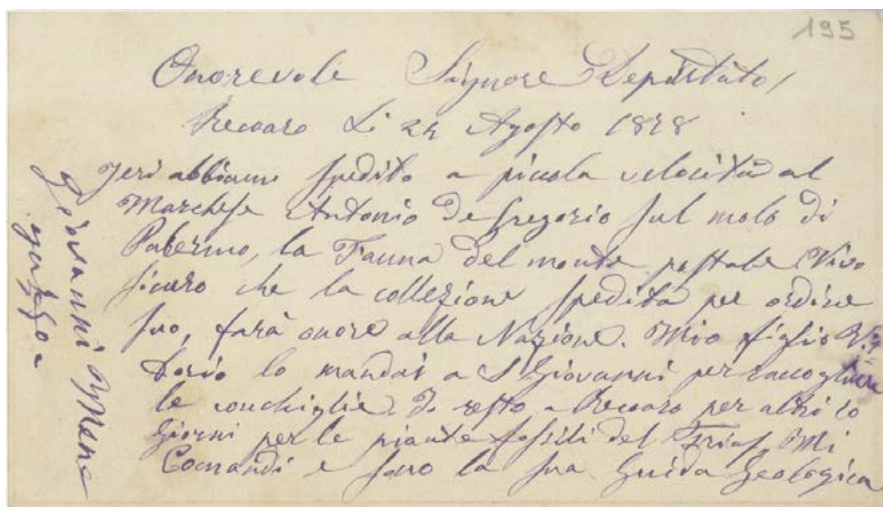 195
Onorevole Signore Deputato,
Recoaro Li 24 Agosto 1878
Jeri abbiamo spedito a piccola velocità al
Marchese Antonio De Gregorio sul molo di
Palermo, la Fauna del monte postale. Vivo
sicuro che la collezione spedita per ordine
suo, farà onore alla Nazione. Mio figlio Vit
torio lo mandai a S Giovanni per raccogliere
le conchiglie. Io resto a Recoaro per altri 10
Giorni per le piante fossili del Trias. Mi
Comandi e sono la sua Guida Geologica
Giovanni Mene
guzzo